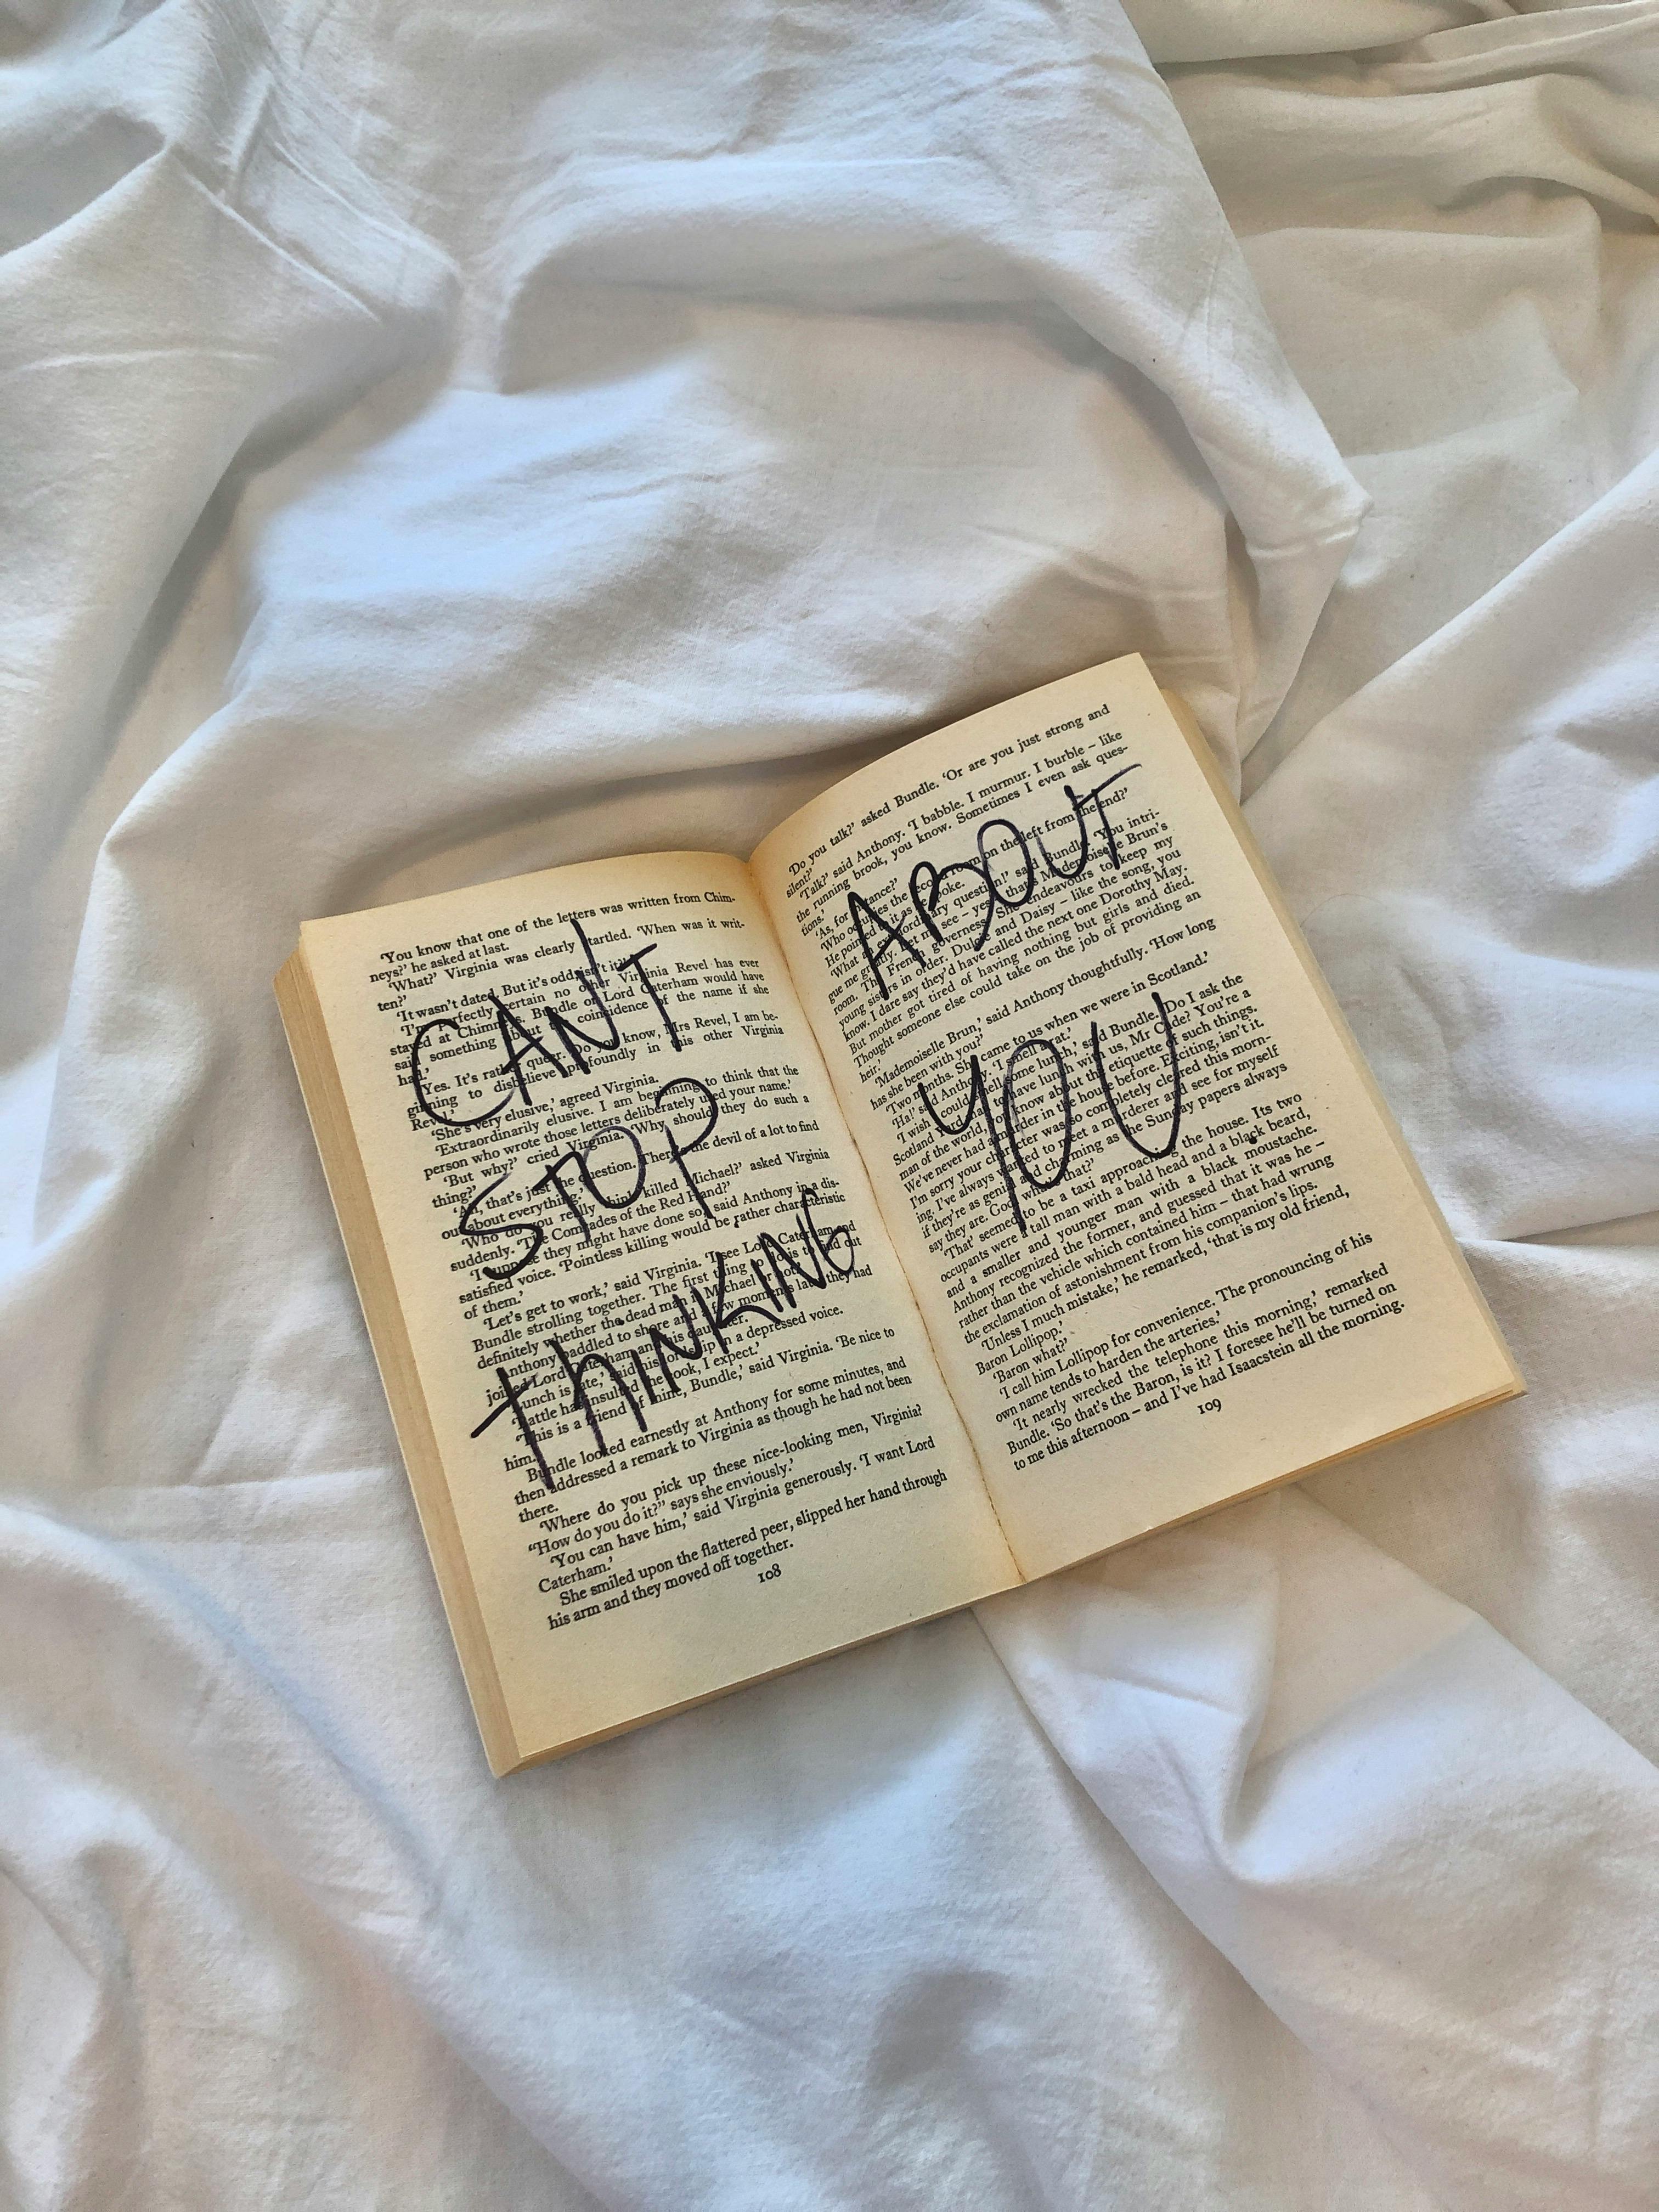 ‘You know that one of the letters was written from Chim-
neys?’ he asked at last.
‘What?’ Virginia was clearly startled. ‘When was it writ-
ten?’
‘It wasn't dated. But it's odd, isn't it?’
‘I'm perfectly certain no other Virginia Revel has ever
stayed at Chimneys. Bundle or Lord Caterham would have
said something about the coincidence of the name if she
had.’
‘Yes. It's rather queer. Do you know, Mrs Revel, I am be-
ginning to disbelieve profoundly in this other Virginia
Revel.’
‘She's very elusive,’ agreed Virginia.
‘Extraordinarily elusive. I am beginning to think that the
person who wrote those letters deliberately used your name.’
‘But why?’ cried Virginia. ‘Why should they do such a
thing?’
‘Ah, that's just the question. There's the devil of a lot to find
out about everything.’
‘Who do you really think killed Michael?’ asked Virginia
suddenly. ‘The Comrades of the Red Hand?’
‘I suppose they might have done so,’ said Anthony in a dis-
satisfied voice. ‘Pointless killing would be rather characteristic
of them.’
‘Let's get to work,’ said Virginia. ‘I see Lord Caterham and
Bundle strolling together. The first thing to do is to find out
definitely whether the dead man is Michael or not.’
Anthony paddled to shore and a few moments later they had
joined Lord Caterham and his daughter.
‘Lunch is late,’ said his lordship in a depressed voice.
‘Battle has insulted the cook, I expect.’
‘This is a friend of mine, Bundle,’ said Virginia. ‘Be nice to
him.’
Bundle looked earnestly at Anthony for some minutes, and
then addressed a remark to Virginia as though he had not been
there.
‘Where do you pick up these nice-looking men, Virginia?
“How do you do it?” says she enviously.’
‘You can have him,’ said Virginia generously. ‘I want Lord
Caterham.’
She smiled upon the flattered peer, slipped her hand through
his arm and they moved off together.
108
CANT
STOP
THINKING
‘Do you talk?’ asked Bundle. ‘Or are you just strong and
silent?’
‘Talk?’ said Anthony. ‘I babble. I murmur. I burble – like
the running brook, you know. Sometimes I even ask ques-
tions.’
‘As, for instance?’
‘Who occupies the second room on the left from the end?’
He pointed to it as he spoke.
‘What an extraordinary question!’ said Bundle. ‘You intri-
gue me greatly. Let me see – yes – that's Mademoiselle Brun's
room. The French governess. She endeavours to keep my
young sisters in order. Dulcie and Daisy – like the song, you
know. I dare say they'd have called the next one Dorothy May.
But mother got tired of having nothing but girls and died.
Thought someone else could take on the job of providing an
heir.’
‘Mademoiselle Brun,’ said Anthony thoughtfully. ‘How long
has she been with you?’
‘Two months. She came to us when we were in Scotland.’
‘Ha!’ said Anthony. ‘I smell a rat.’
‘I wish I could smell some lunch,’ said Bundle. ‘Do I ask the
Scotland Yard man to have lunch with us, Mr Cade? You're a
man of the world, you know about the etiquette of such things.
We've never had a murder in the house before. Exciting, isn't it.
I'm sorry your character was so completely cleared this morn-
ing. I've always wanted to meet a murderer and see for myself
if they're as genial and charming as the Sunday papers always
say they are. God! what's that?’
‘That’ seemed to be a taxi approaching the house. Its two
occupants were a tall man with a bald head and a black beard,
and a smaller and younger man with a black moustache.
Anthony recognized the former, and guessed that it was he –
rather than the vehicle which contained him – that had wrung
the exclamation of astonishment from his companion's lips.
‘Unless I much mistake,’ he remarked, ‘that is my old friend,
Baron Lollipop.’
‘Baron what?’
‘I call him Lollipop for convenience. The pronouncing of his
own name tends to harden the arteries.’
‘It nearly wrecked the telephone this morning,’ remarked
Bundle. ‘So that's the Baron, is it? I foresee he'll be turned on
to me this afternoon – and I've had Isaacstein all the morning.
109
ABOUT
YOU